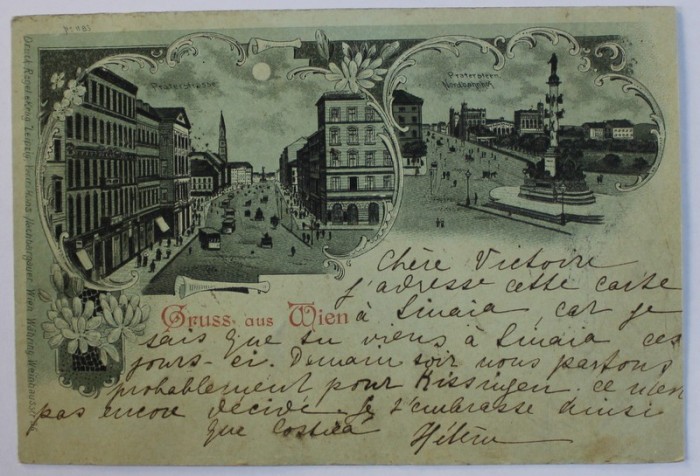 Praterstrasse.
Praterstern.
Nordbahnhof
Gruss aus Wien
Chère Victoire
j'adresse cette carte
à Sinaia, car je
sais que tu viens à Sinaia ces
jours-ci. Demain soir nous partons
probablement pour Kissingen. ce n'est
pas encore décidé. Je t'embrasse ainsi
que Costică
Hélène